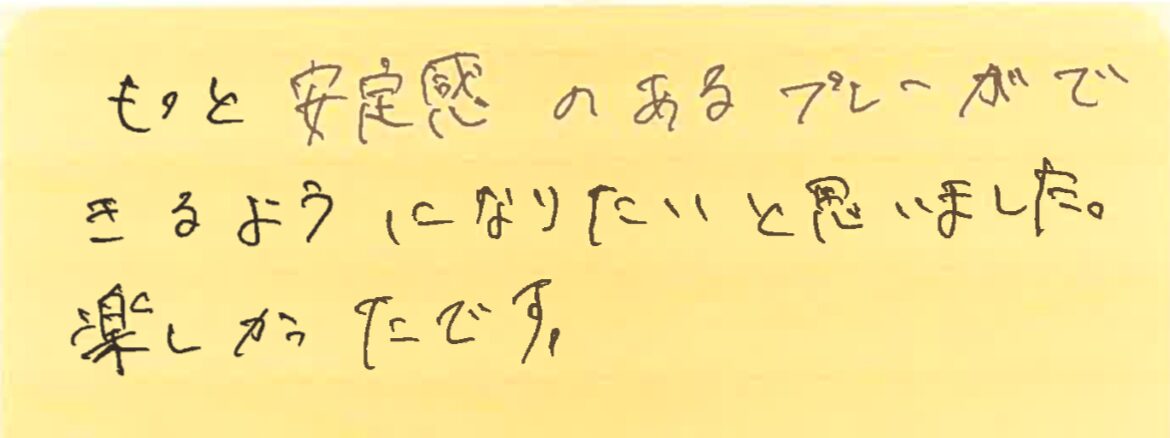 もっと安定感のあるプレーがで
きるようになりたいと思いました。
楽しかったです。